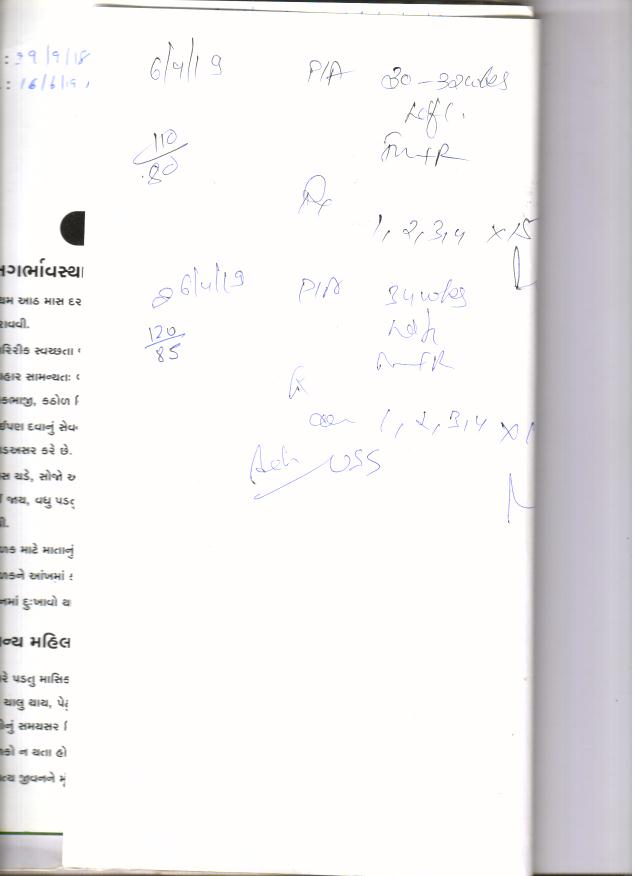 : 29/9/18
: 16/6/19
6/4/19 P/A 30-32wks
110/80
Rx
1, 2, 3, 4 x 15
26/4/19 P/A 34wks
120/85
1, 2, 3, 4 x
Adv USS
સગર્ભાવસ્થા
થમ આઠ માસ દર
રાવવી.
રિરીક સ્વચ્છતા
હાર સામન્યતઃ
કભાજી, કઠોળ
ઈપણ દવાનું સેવ
ડઅસર કરે છે.
સ ચડે, સોજો અ
જાય, વધુ પડત્
વી.
ળક માટે માતાનું
ળકને આંખમાં
નમાં દુઃખાવો થ
ન્ય મહિલ
રે પડતુ માસિક
ચાલુ થાય, પેઢ
ીનું સમયસર
કો ન થતા હો
ત્ય જીવનને મું